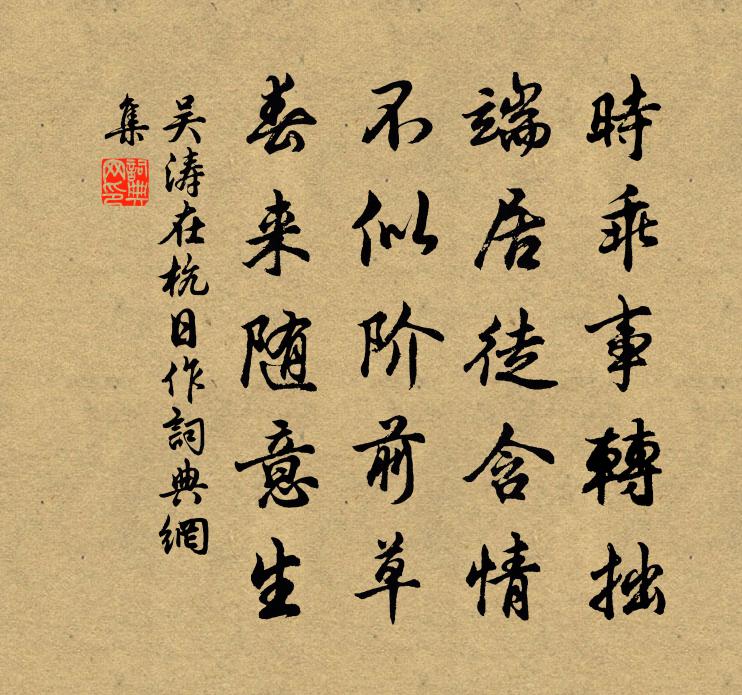 時乖事轉拙
端居徒含情
不似阶前草
春来随意生
吴涛在杭日作詞典網
集
詞典
网印